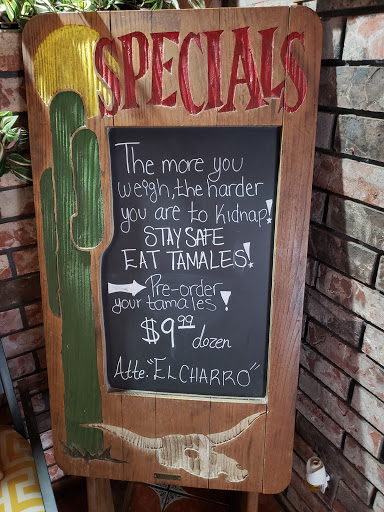 SPECIALS
The more you
weigh, the harder
you are to Kidnap!
STAY SAFE
EAT TAMALES!
Pre-order
your tamales!
$9.99 dozen
Atte. "EL CHARRO"